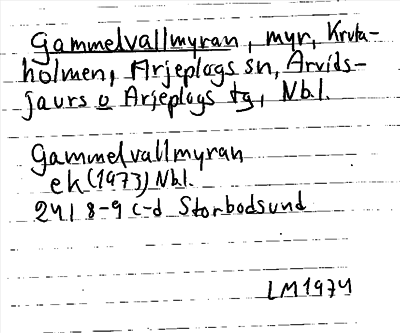 Gammelvallmyran, myr, Kruta-
holmen, Arjeplogs sn, Arvids-
jaurs o Arjeplogs tg, Nbl.
Gammelvallmyran
ek (1973) Nbl.
24I 8-9 c-d Storbodsund
LM1974